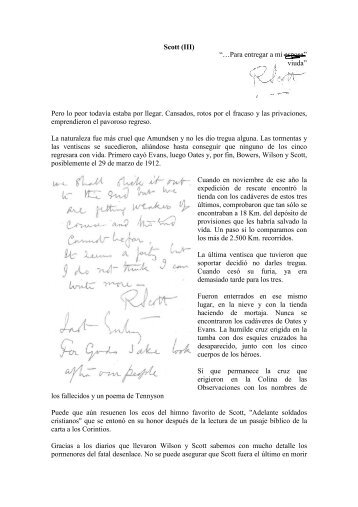 Scott (III)
“…Para entregar a mi esposa”
viuda”
R Scott
Pero lo peor todavía estaba por llegar. Cansados, rotos por el fracaso y las privaciones,
emprendieron el pavoroso regreso.
La naturaleza fue más cruel que Amundsen y no les dio tregua alguna. Las tormentas y
las ventiscas se sucedieron, aliándose hasta conseguir que ninguno de los cinco
regresara con vida. Primero cayó Evans, luego Oates y, por fin, Bowers, Wilson y Scott,
posiblemente el 29 de marzo de 1912.
we shall stick it out
to the end but we
are getting weaker of
course and the end
cannot be far.
It seems a pity but
I do not think I can
write more –
R Scott
Last Entry
For Gods sake look
after our people
Cuando en noviembre de ese año la
expedición de rescate encontró la
tienda con los cadáveres de estos tres
últimos, comprobaron que tan sólo se
encontraban a 18 Km. del depósito de
provisiones que les habría salvado la
vida. Un paso si lo comparamos con
los más de 2.500 Km. recorridos.
La última ventisca que tuvieron que
soportar decidió no darles tregua.
Cuando cesó su furia, ya era
demasiado tarde para los tres.
Fueron enterrados en ese mismo
lugar, en la nieve y con la tienda
haciendo de mortaja. Nunca se
encontraron los cadáveres de Oates y
Evans. La humilde cruz erigida en la
tumba con dos esquíes cruzados ha
desaparecido, junto con los cinco
cuerpos de los héroes.
Si que permanece la cruz que
erigieron en la Colina de las
Observaciones con los nombres de
los fallecidos y un poema de Tennyson
Puede que aún resuenen los ecos del himno favorito de Scott, "Adelante soldados
cristianos" que se entonó en su honor después de la lectura de un pasaje bíblico de la
carta a los Corintios.
Gracias a los diarios que llevaron Wilson y Scott sabemos con mucho detalle los
pormenores del fatal desenlace. No se puede asegurar que Scott fuera el último en morir